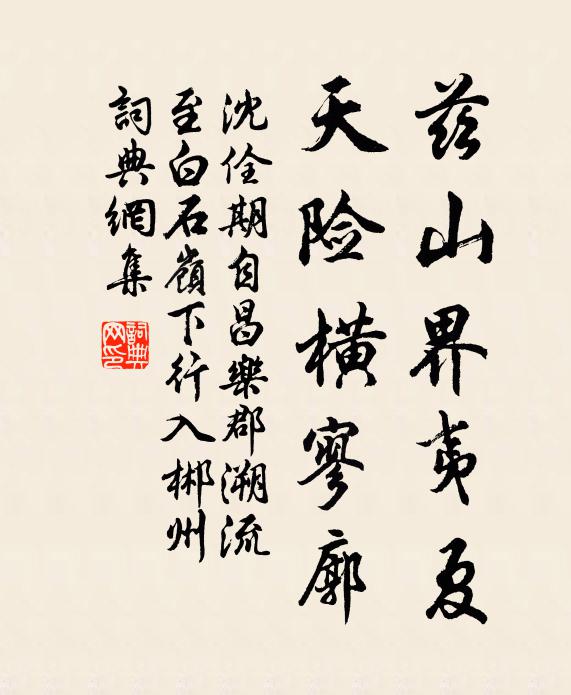 兹山界夷夏
天险橫寥廓
沈佺期自昌樂郡溯流
至白石嶺下行入郴州
詞典網集
詞典網印